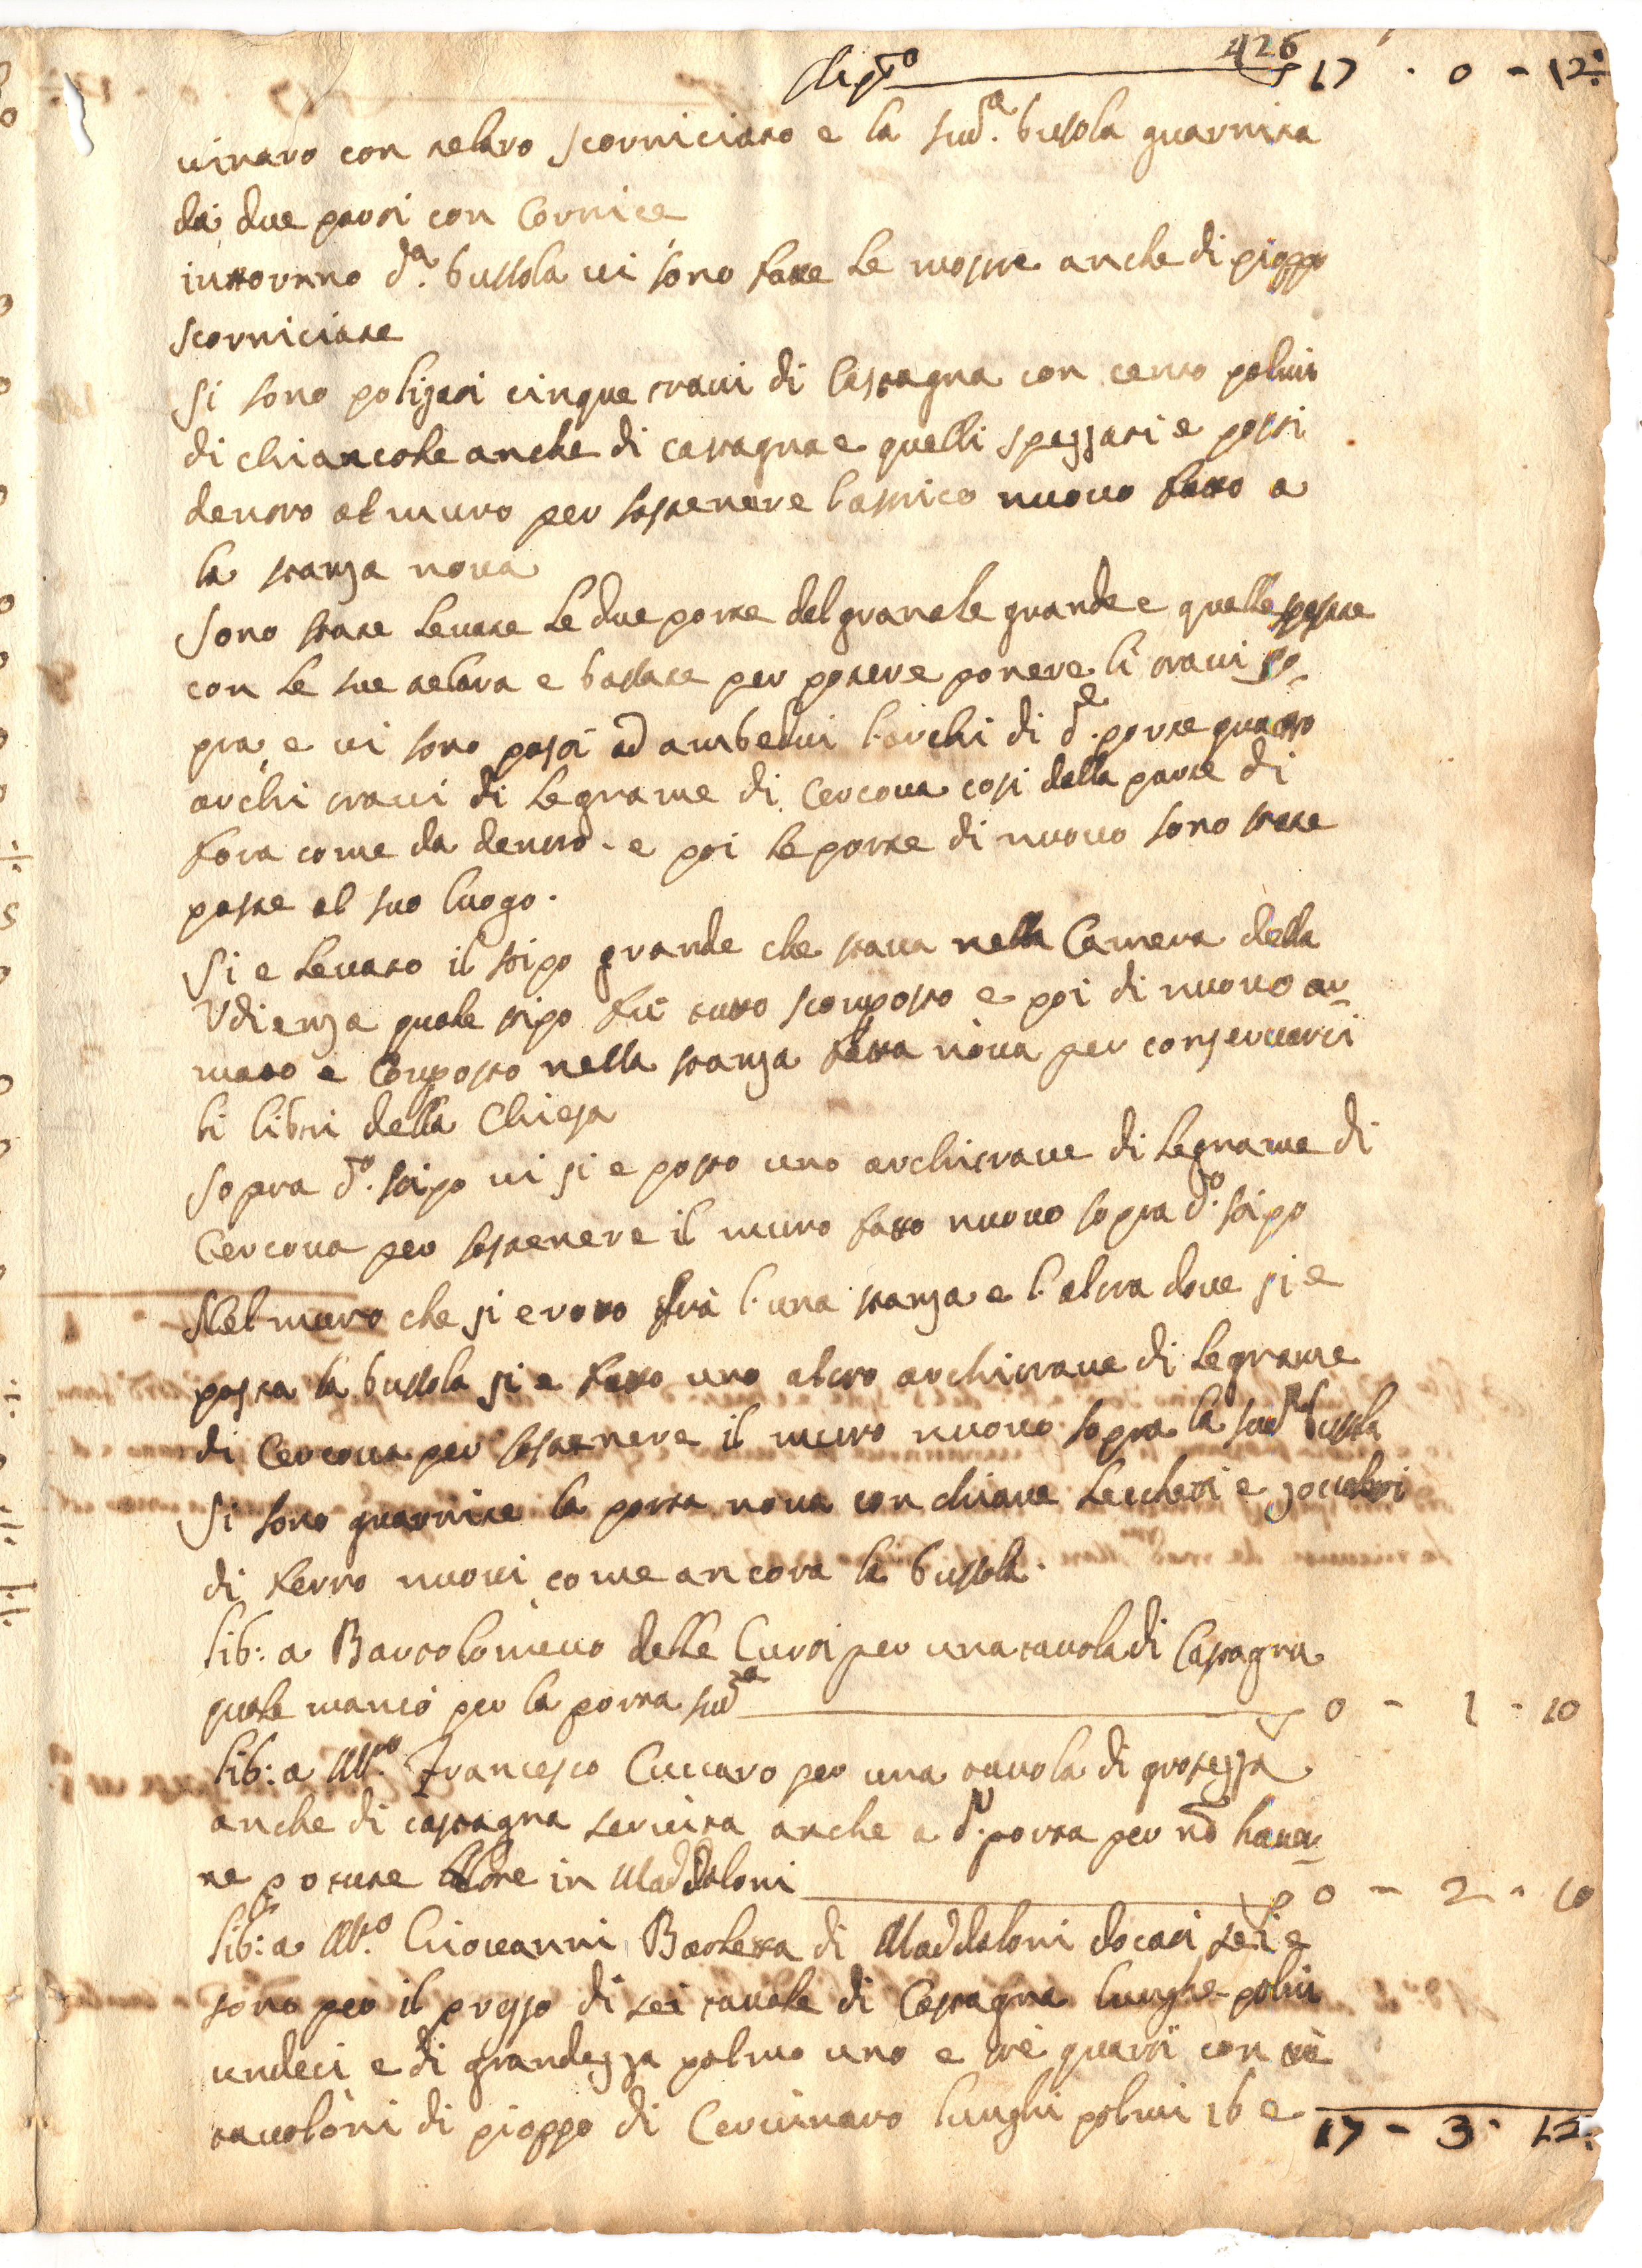 426
17 - 0 - 12:
vinaro con telaro scorniciato e la sud.ª bussola guarnita
da due parti con Cornice
intorno d.ª bussola vi sono fatte le mostre anche di pioppo
scorniciate
Si sono poligati cinque travi di Castagna con cento palmi
di chiancole anche di castagna e quelli spezzati e posti
dentro al muro per sostenere l'astrico nuovo fatto a
la stanza nova
Sono state levate le due porte del granele grande e quelle
con le sue telara e bassate per potere ponere li travi so-
pra, e vi sono posti ad ambedui l'archi di d.e porte quatro
archi travi di legname di Cercova cosi dalla parte di
fora come da dentro - e poi le porte di nuovo sono state
poste al suo luogo.
Si e levato il stipo grande che stava nella Camera della
Udienza quale stipo fù tutto scomposto e poi di nuovo ar-
mato e Composto nella stanza fatta nova per conservarci
li libri della Chiesa
Sopra d.º stipo vi si e posto uno architrave di legname di
Cercova per sostenere il muro fatto nuovo sopra d.º stipo
Nel muro che si e rotto frà l'una stanza e l'altra dove si e
posta la bussola si e fatto uno altro architrave di legname
di Cercova per sostenere il muro nuovo sopra la sud.ª bussola
Si sono guarnite la porta nova con chiave licchetti e zoccoletti
di ferro nuovi come ancora la bussola.
lib: a Bartolomeuo delle Curti per una tavola di Castagna
quale mancò per la porta sud.ª 0 - 1 - 10
lib: a M.ro Francesco Cuccaro per una tavola di grossezza
anche di castagna servita anche a d.ª porta per nō haver-
ne potute in Maddaloni 0 - 2 - 10
lib: a M.ro Giovanni Barletta di Maddaloni docati sei e
sono per il prezzo di sei tavole di Castagna lunghe palmi
undeci e di grandezza palmo uno e trè quarti con
tavoloni di pioppo di Cervinaro lunghi palmi 16 e
17 - 3 - 12: